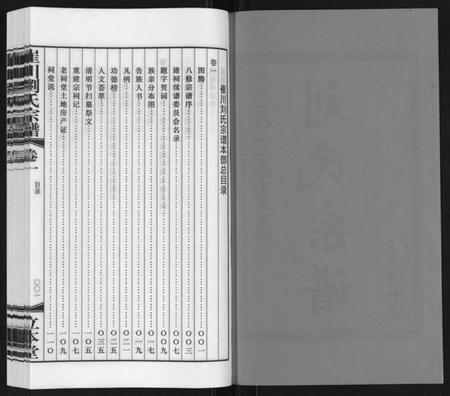 崔川刘氏宗谱本部总目录
卷一
图腾……〇〇一
八修宗谱序……〇〇三
建祠续谱委员会名录……〇〇七
题字贺词……〇〇九
族亲分布图……〇一七
告族人书……〇一九
凡例……〇二一
功德榜……〇二五
人文荟萃……〇三五
清明节扫墓祭文……一〇五
重建宗祠记……一〇七
老祠堂土地房产证……一〇九
祠堂说……一一〇
崔川刘氏宗谱
卷一
目录
〇〇一
立本堂